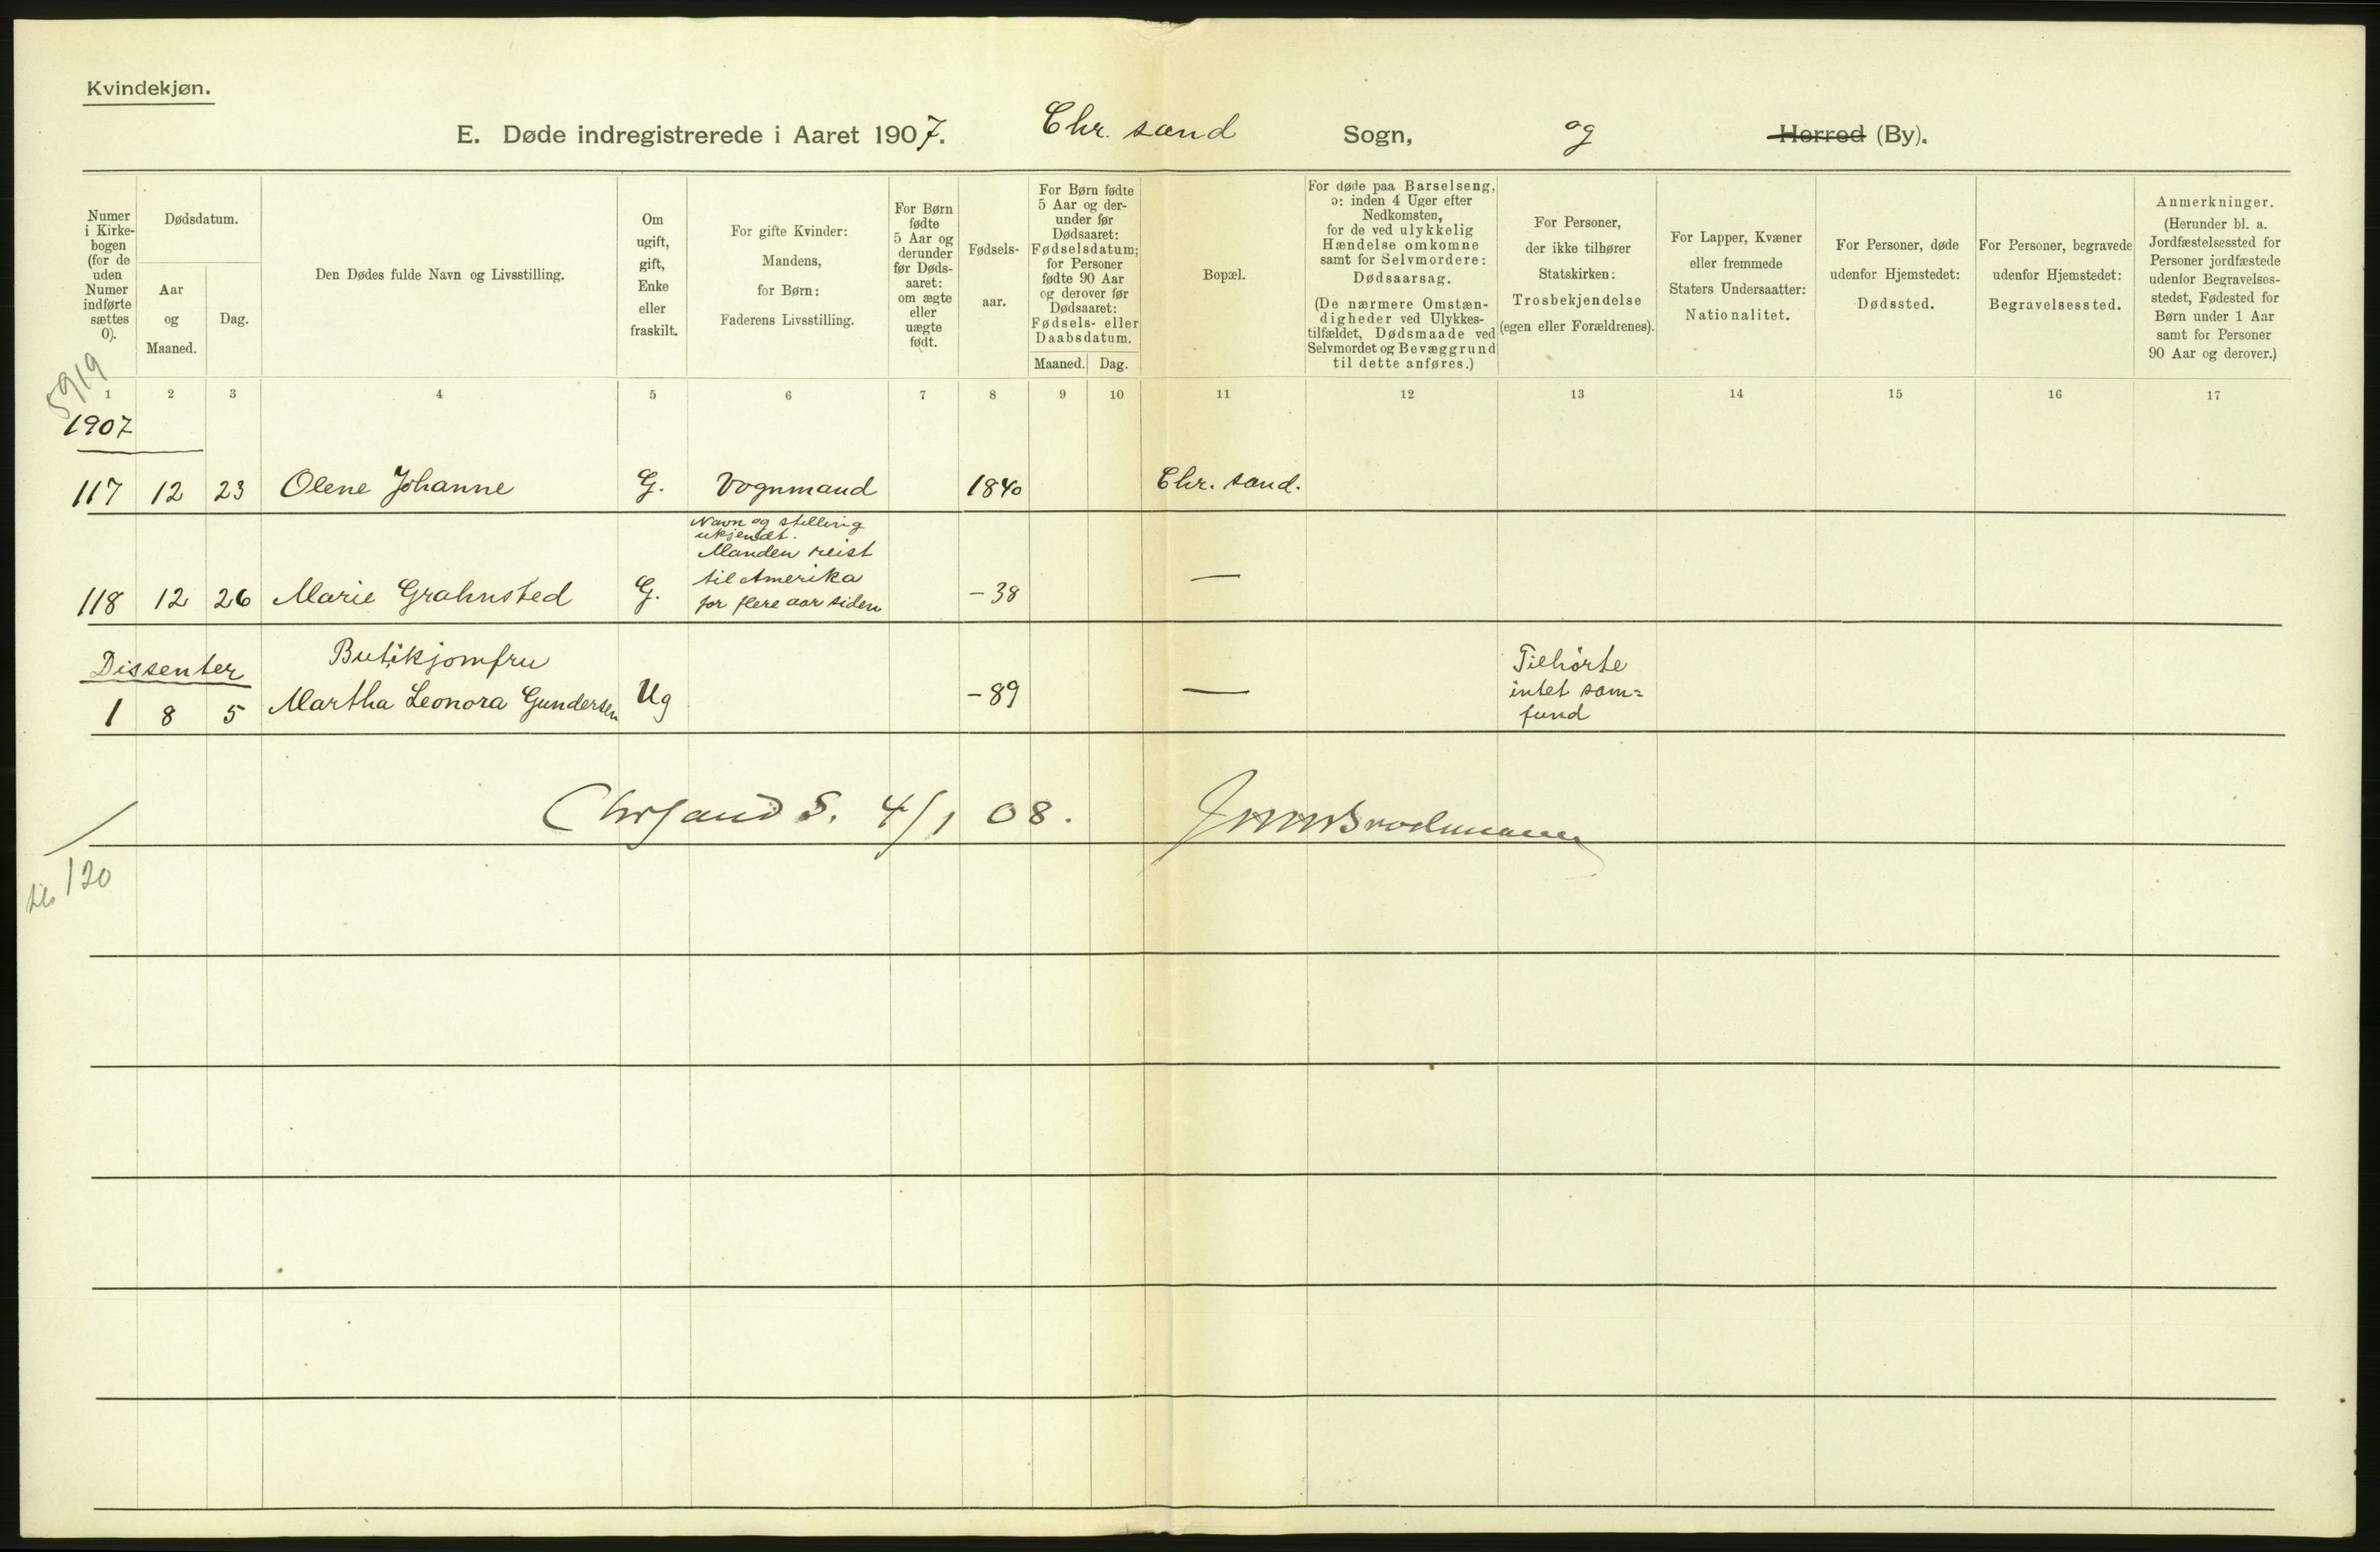 Kvindekjøn.
E. Døde indregistrerede i Aaret 1907. Chr. sand Sogn, og Herred (By).
Numer
i Kirke-
bogen
(for de
uden
Numer
indførte
sættes
0).
Dødsdatum.
Aar
og
Maaned.
Dag.
Den Dødes fulde Navn og Livsstilling.
Om
ugift,
gift,
Enke
eller
fraskilt.
For gifte Kvinder:
Mandens,
for Børn:
Faderens Livsstilling.
For Børn
fødte
5 Aar og
derunder
før Døds-
aaret:
om ægte
eller
uægte
født.
Fødsels-
aar.
For Børn fødte
5 Aar og der-
under før
Dødsaaret:
Fødselsdatum;
for Personer
fødte 90 Aar
og derover før
Dødsaaret:
Fødsels- eller
Daabsdatum.
Maaned. Dag.
Bopæl.
For døde paa Barselseng,
ɔ: inden 4 Uger efter
Nedkomsten,
for de ved ulykkelig
Hændelse omkomne
samt for Selvmordere:
Dødsaarsag.
(De nærmere Omstæn-
digheder ved Ulykkes-
tilfældet, Dødsmaade ved
Selvmordet og Bevæggrund
til dette anføres.)
For Personer,
der ikke tilhører
Statskirken:
Trosbekjendelse
(egen eller Forældrenes).
For Lapper, Kvæner
eller fremmede
Staters Undersaatter:
Nationalitet.
For Personer, døde
udenfor Hjemstedet:
Dødssted.
For Personer, begravede
udenfor Hjemstedet:
Begravelsessted.
Anmerkninger.
(Herunder bl. a.
Jordfæstelsessted for
Personer jordfæstede
udenfor Begravelses-
stedet, Fødested for
Børn under 1 Aar
samt for Personer
90 Aar og derover.)
5919
1 2 3 4 5 6 7 8 9 10 11 12 13 14 15 16 17
1907
117 12 23 Olene Johanne G. Vognmand 1840 Chr. sand.
Navn og stilling
ukjendt.
Manden reist
til Amerika
for flere aar siden
118 12 26 Marie Grahnsted G. - 38 —
Dissenter
Butikjomfru
1 8 5 Martha Leonora Gundersen Ug - 89 —
Tilhørte
intet sam=
fund
Chrsand S. 4/1 08.
120